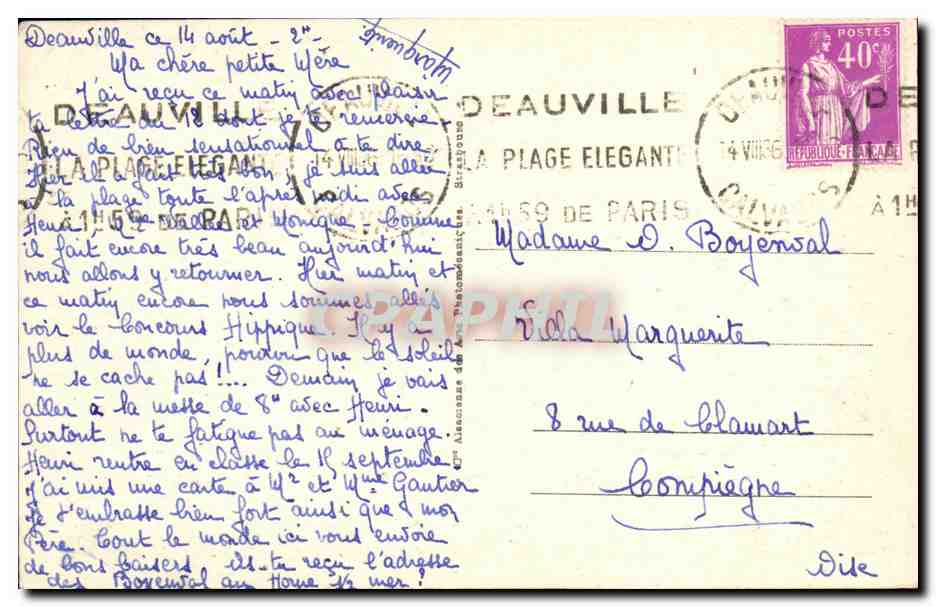 Deauville ce 14 août - 2H -
Marguerite
Ma chère petite Mère
J'ai reçu ce matin avec plaisir
ta lettre du 12 dont je te remercie.
Rien de bien sensationnel à te dire.
Hier il a fait très bon, je suis allée
à la plage toute l'après midi avec
Henri, et Monique. Comme
il fait encore très beau aujourd'hui
nous allons y retourner. Hier matin et
ce matin encore nous sommes allés
voir le Concours Hippique. Il y a
plus de monde, pourvu que le soleil
ne se cache pas!... Demain je vais
aller à la messe de 8H avec Henri.
Surtout ne te fatigue pas au ménage.
Henri rentre en classe le 15 septembre
J'ai mis une carte à Mr et Mme Gautier
Je t'embrasse bien fort ainsi que mon
Père. Tout le monde ici vous envoie
de bons baisers. As-tu reçu l'adresse
des Boyenval au Home s/ mer?
DEAUVILLE
LA PLAGE ELEGANTE
À 1H59 DE PARIS
DEAUVILLE
LA PLAGE ELEGANTE
À 1H59 DE PARIS
DEAUVILLE
14 VIII 36
CALVADOS
POSTES
40c
RÉPUBLIQUE FRANÇAISE
DE
LA P
À 1H
Cie Alsacienne des Arts Photomécaniques, Strasbourg
CPAPHIL
Madame D. Boyenval
Villa Marguerite
8 rue de Clamart
Compiègne
Oise